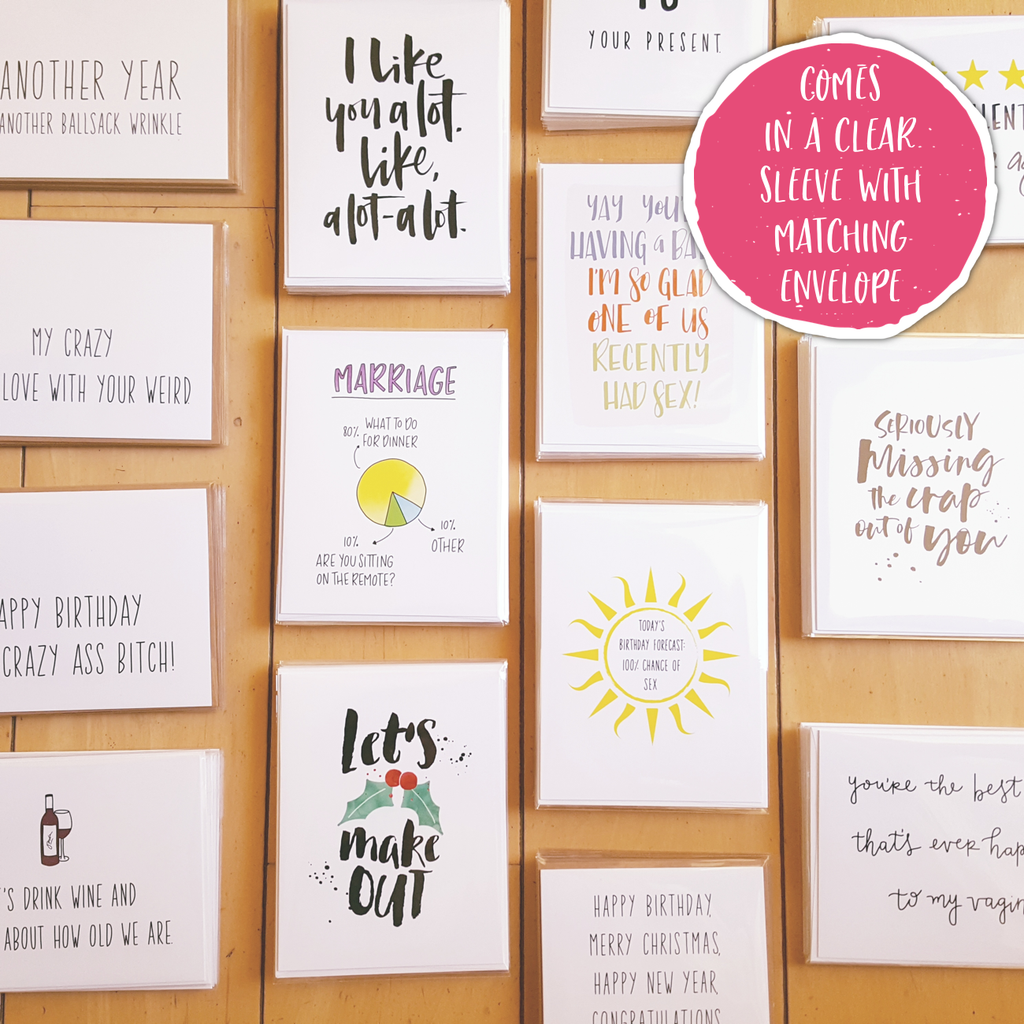 ANOTHER YEAR
ANOTHER BALLSACK WRINKLE
MY CRAZY
LOVE WITH YOUR WEIRD
BIRTHDAY
CRAZY ASS BITCH!
DRINK WINE AND
ABOUT HOW OLD WE ARE.
I like
you a lot.
like,
a lot-a lot.
MARRIAGE
80% WHAT TO DO
FOR DINNER
10%
OTHER
10%
ARE YOU SITTING
ON THE REMOTE?
Let's
make
OUT
YOUR PRESENT.
YAY
HAVING a
I'M SO GLAD
ONE OF US
RECENTLY
HAD SEX!
TODAY'S
BIRTHDAY FORECAST:
100% CHANCE OF
SEX
HAPPY BIRTHDAY,
MERRY CHRISTMAS,
HAPPY NEW YEAR
CONGRATULATIONS
COMES
IN A CLEAR
SLEEVE WITH
MATCHING
ENVELOPE
SERIOUSLY
Missing
the crap
out of you
you're the best
that's ever
to my